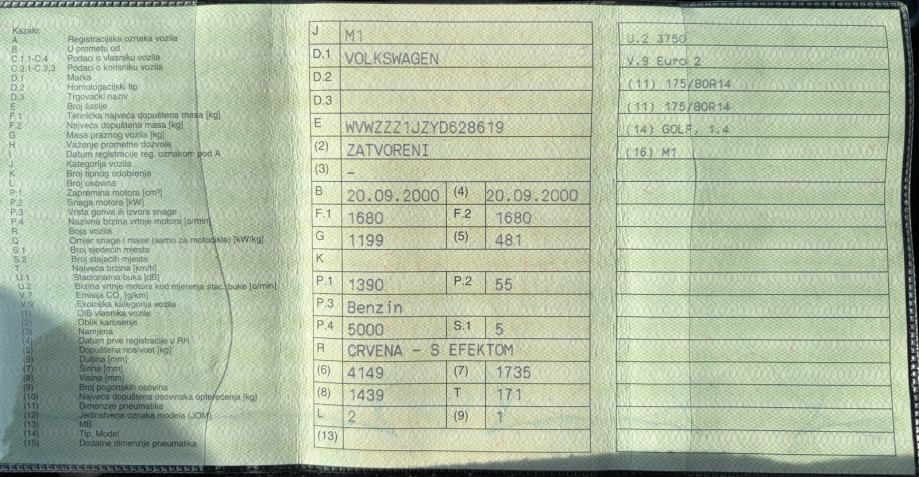 Kazalo:
A Registracijska oznaka vozila
B U prometu od
C.1.1-C.4 Podaci o vlasniku vozila
C.3.1-C.3.3 Podaci o korisniku vozila
D.1 Marka
D.2 Homologacijski tip
D.3 Trgovački naziv
E Broj šasije
F.1 Tehnička najveća dopuštena masa [kg]
F.2 Najveća dopuštena masa [kg]
G Masa praznog vozila [kg]
H Važenje prometne dozvole
I Datum registracije reg. oznakom pod A
J Kategorija vozila
K Broj tipnog odobrenja
L Broj osovina
P.1 Zapremina motora [cm³]
P.2 Snaga motora [kW]
P.3 Vrsta goriva ili izvora snage
P.4 Nazivna brzina vrtnje motora [o/min]
R Boja vozila
Q Omjer snage i mase (samo za motocikle) [kW/kg]
S.1 Broj sjedećih mjesta
S.2 Broj stajaćih mjesta
T Najveća brzina [km/h]
U.1 Stacionarna buka [dB]
U.2 Brzina vrtnje motora kod mjerenja stac. buke [o/min]
V.7 Emisija CO₂ [g/km]
V.9 Ekološka kategorija vozila
(1) OIB vlasnika vozila
(2) Oblik karoserije
(3) Namjena
(4) Datum prve registracije u RH
(5) Dopuštena nosivost [kg]
(6) Duljina [mm]
(7) Širina [mm]
(8) Visina [mm]
(9) Broj pogonskih osovina
(10) Najveća dopuštena osovinska opterećenja [kg]
(11) Dimenzije pneumatika
(12) Jedinstvena oznaka modela (JOM)
(13) MB
(14) Tip, Model
(15) Dodatne dimenzije pneumatika
J M1
D.1 VOLKSWAGEN
D.2
D.3
E WVWZZZ1JZYD628619
(2) ZATVORENI
(3) –
B 20.09.2000 (4) 20.09.2000
F.1 1680 F.2 1680
G 1199 (5) 481
K
P.1 1390 P.2 55
P.3 Benzin
P.4 5000 S.1 5
R CRVENA - S EFEKTOM
(6) 4149 (7) 1735
(8) 1439 T 171
L 2 (9) 1
(13)
U.2 3750
V.9 Euro 2
(11) 175/80R14
(11) 175/80R14
(14) GOLF, 1.4
(16) M1